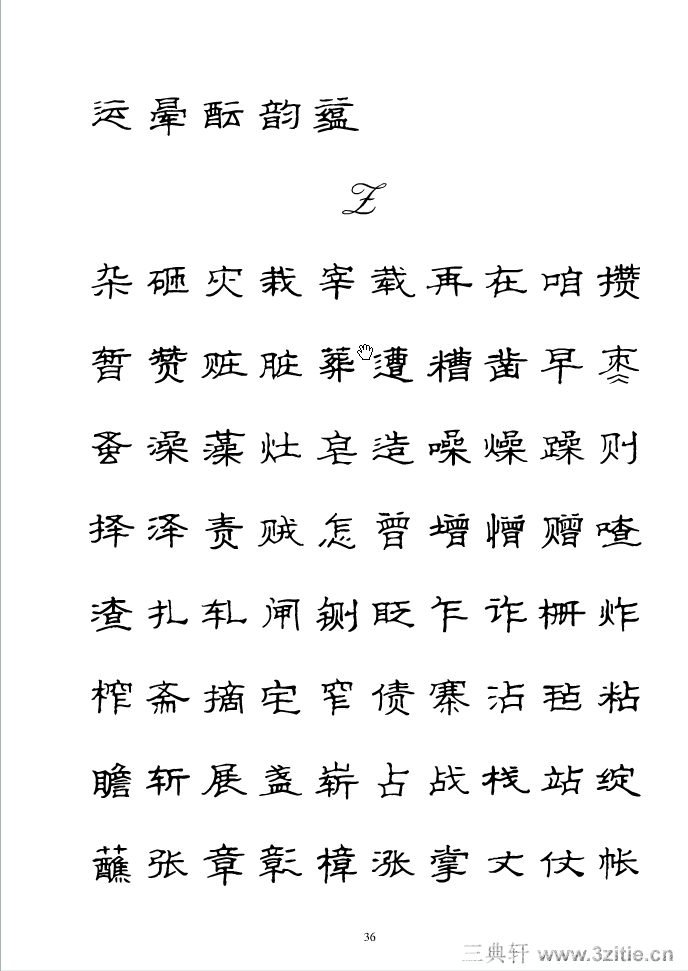 运晕酝韵蕴
Z
杂砸灾栽宰载再在咱攒
暂赞赃脏葬遭糟凿早枣
蚤澡藻灶皂造噪燥躁则
择泽责贼怎曾增憎赠喳
渣扎轧闸铡眨乍诈栅炸
榨斋摘宅窄债寨沾毡粘
瞻斩展盏崭占战栈站绽
蘸张章彰樟涨掌丈仗帐
36
三典轩 www.3zitie.cn